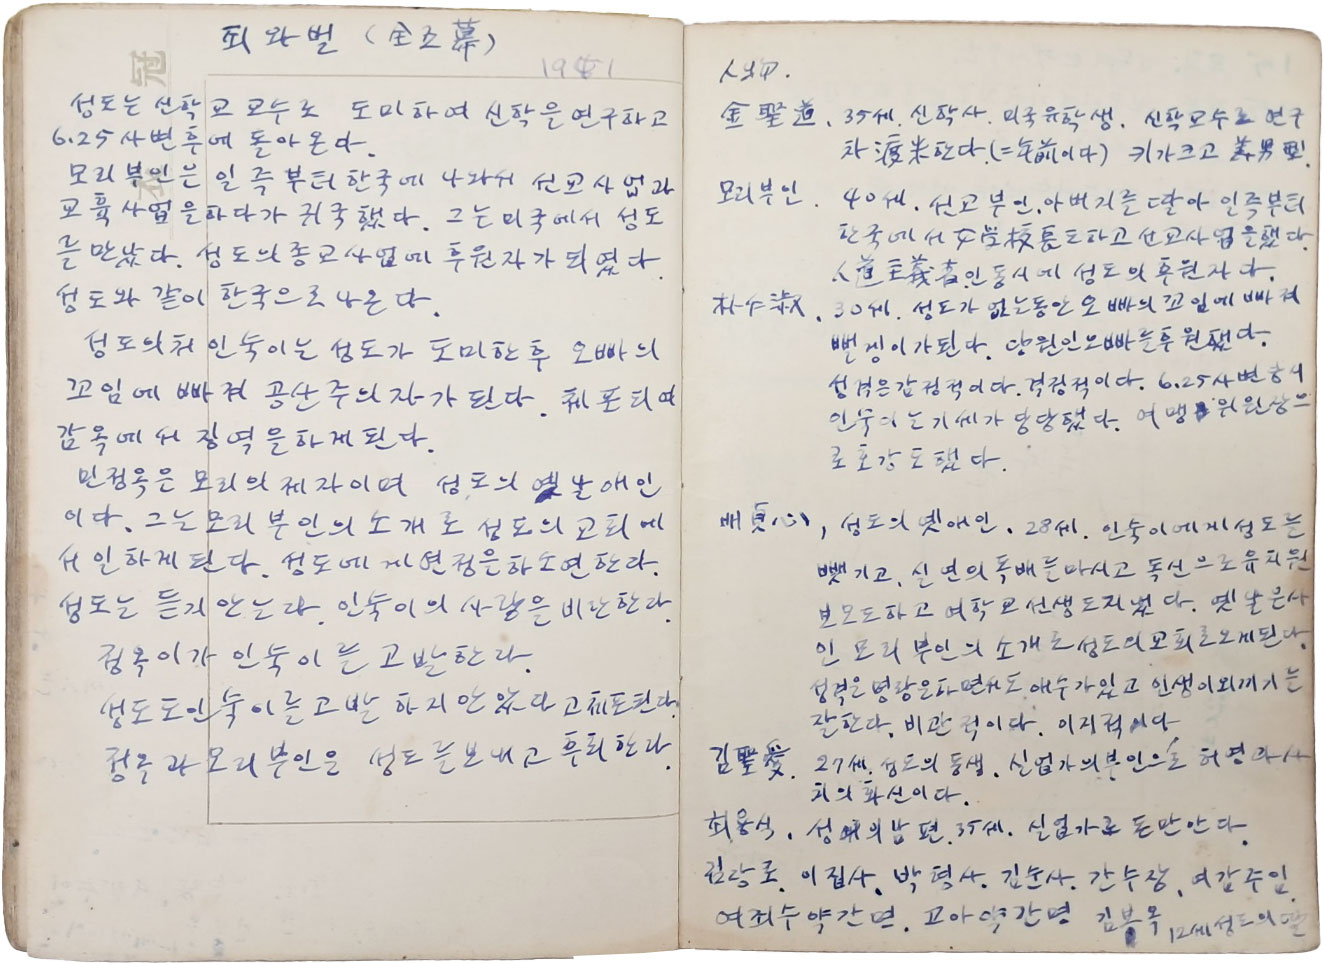 죄와벌 (全五幕)
1941
성도는 신학교 교수로 도미하여 신학을 연구하고
6.25 사변후에 돌아온다.
모리부인은 일즉부터 한국에 나와서 선교사업과
교육사업을하다가 귀국했다. 그는 미국에서 성도
를 만났다. 성도의 종교사업에 후원자가 되였다.
성도와 같이 한국으로 나온다.
성도의처 인숙이는 성도가 도미한후 오빠의
꼬임에 빠져 공산주의자가 된다. 체포되여
감옥에서 징역을하게된다.
민정옥은 모리의 제자이며 성도의 옛날애인
이다. 그는 모리부인의 소개로 성도의 교회에
서 일하게된다. 성도에게 연정을하소연한다.
성도는 듣지안는다. 인숙이의 사랑을 비난한다.
정옥이가 인숙이를 고발한다.
성도도인숙이를고발 하지안았다고체포된다.
정옥과 모리부인은 성도를보내고 후회한다.
人物.
金聖道. 35세. 신학사. 미국유학생. 신학교수로 연구
차 渡米한다.(二年前이다) 키가크고 美男型.
모리부인. 40세. 선교부인. 아버지를 딸아 일즉부터
한국에서 女学校長도하고 선교사업을했다.
人道主義者인동시에 성도의 후원자다.
朴仁淑. 30세. 성도가 없는동안 오빠의 꼬임에 빠져
뺄겡이가된다. 당원인오빠를후원했다.
성격은감정적이다. 격정적이다. 6.25사변
인숙이는기세가 당당했다. 여맹 위원장으
로 호강도했다.
裵貞心, 성도의 옛애인. 28세. 인숙이에게성도를
뺏기고, 실연의 독배를마시고 독신으로유치원
보모도하고 여학교선생도지냈다. 옛날은사
인 모리부인의 소개로성도의교회로오게된다.
성격은명랑은하면서도, 애수가있고 인생이외까지는
잘한다. 비관적이다. 이지적이다
김聖愛. 27세. 성도의 동생. 실업가의부인으로 허영과사
치의 화신이다.
최용식. 성애의남편. 35세. 실업가로 돈만안다.
김장로. 이집사. 박형사. 김순사. 간수장. 여감주임.
여죄수약간명. 고아약간명 김봉옥 12세성도의딸